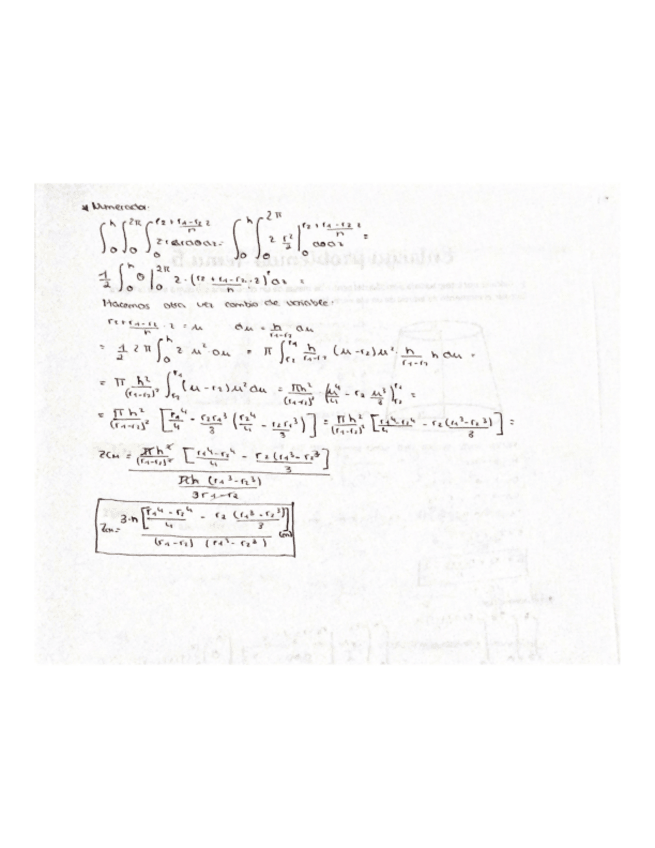 * Numerador:
∫₀^h ∫₀^2π ∫₀^(r₂ + (r₁-r₂)/h z) z r dr dθ dz = ∫₀^h ∫₀^2π z r²/2 |₀^(r₂ + (r₁-r₂)/h z) dθ dz =
1/2 ∫₀^h θ |₀^2π z · (r₂ + (r₁-r₂)/h · z)² dz =
Hacemos otra vez cambio de variable:
r₂ + (r₁-r₂)/h · z = u du = h/(r₁-r₂) du
= 1/2 2π ∫₀^h z u² du = π ∫_r₂^r₁ h/(r₁-r₂) (u-r₂) u² · h/(r₁-r₂) du =
= π h²/(r₁-r₂)² ∫_r₂^r₁ (u-r₂) u² du = πh²/(r₁-r₂)² (u⁴/4 - r₂ u³/3)_r₂^r₁ =
= πh²/(r₁-r₂)² [r₁⁴/4 - r₂r₁³/3 (r₂⁴/4 - r₂r₂³/3)] = πh²/(r₁-r₂)² [(r₁⁴-r₂⁴)/4 - r₂(r₁³-r₂³)/3] =
zcm = πh²/(r₁-r₂)² [(r₁⁴-r₂⁴)/4 - r₂(r₁³-r₂³)/3]
πh (r₁³-r₂³)
3 r₁-r₂
zcm = 3·h [(r₁⁴-r₂⁴)/4 - r₂ (r₁³-r₂³)/3] (m)
(r₁-r₂) (r₁³-r₂³)